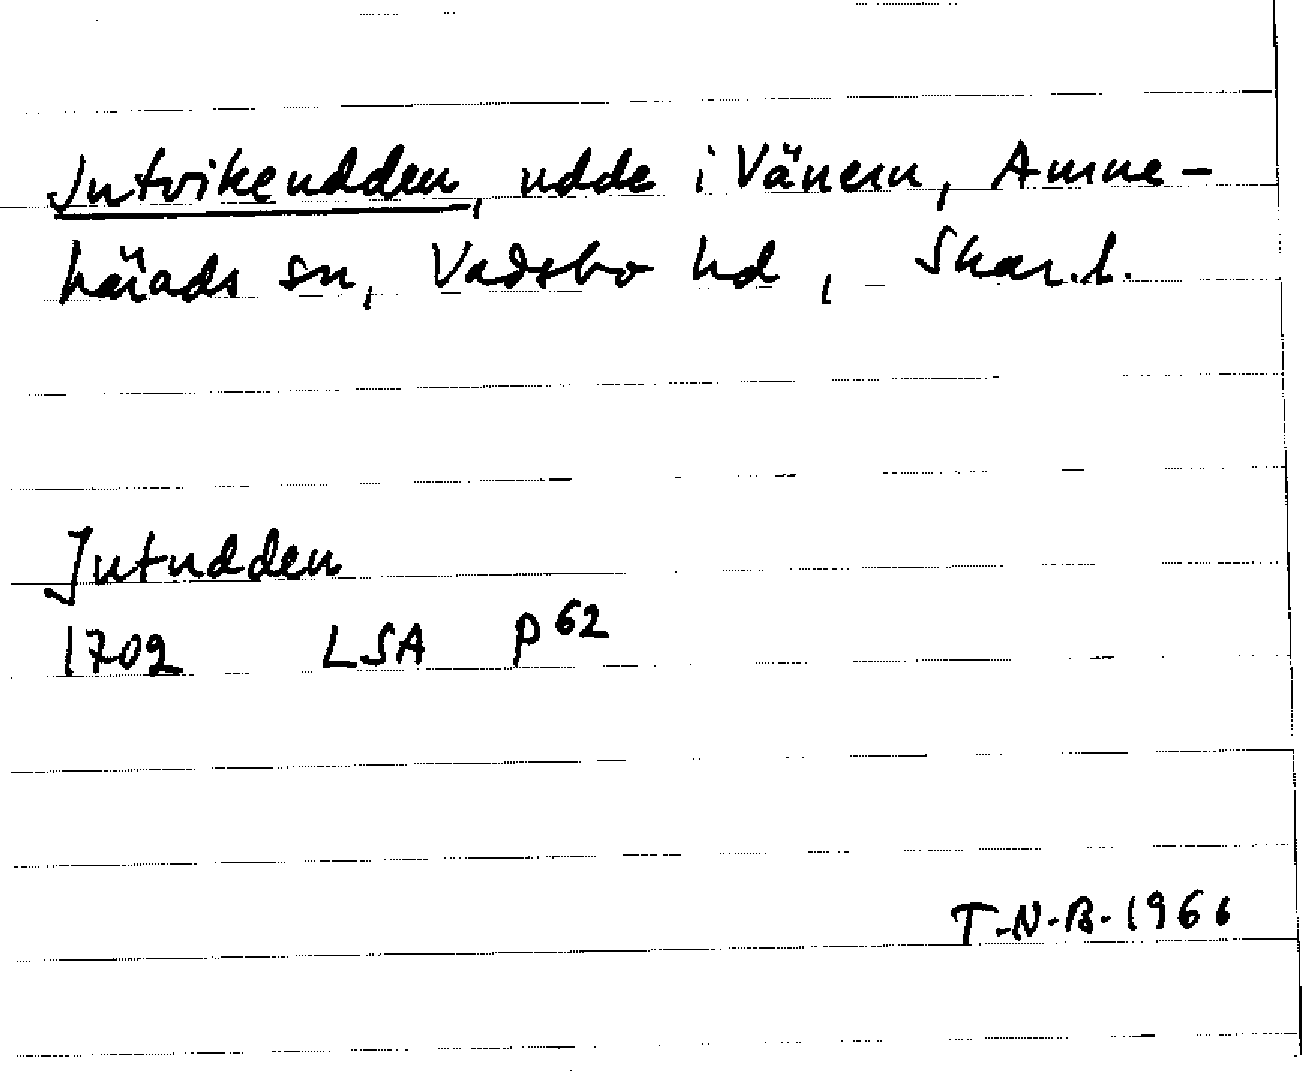 Jutvikeudden, udde i Vänern, Amne-
härads sn, Vadsbo hd, Skar. l.
Jutudden
1702 LSA P 62
T-N-B-1966